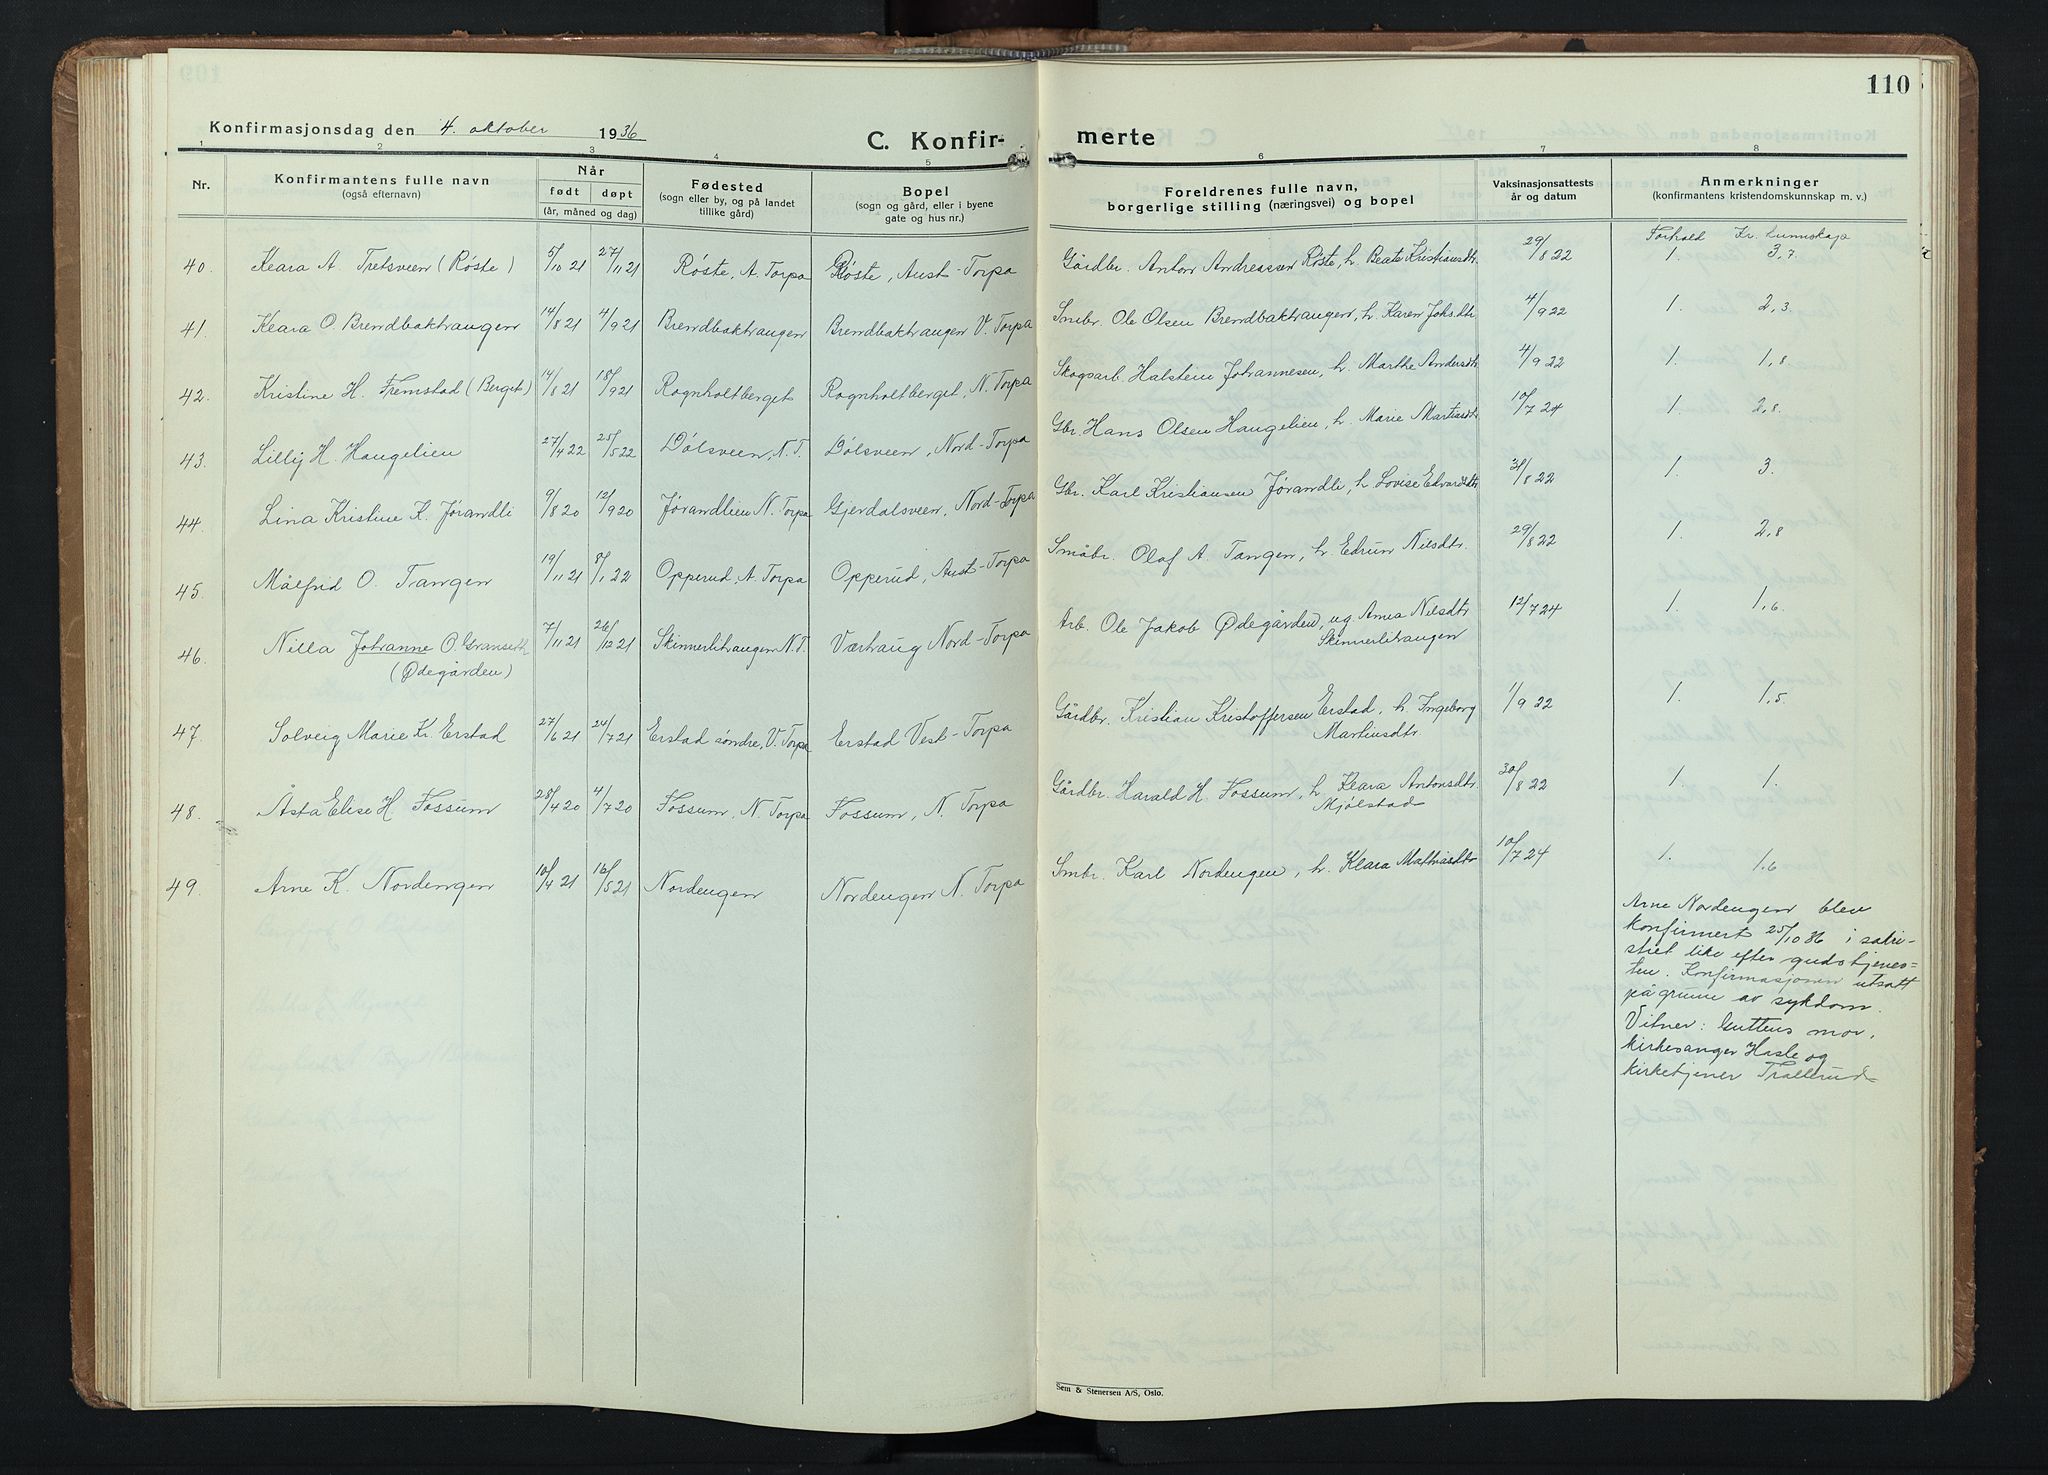 110
Konfirmasjonsdag den 4. oktober 1936
C. Konfir-
merte
1 2 3 4 5 6 7 8
Nr.
Konfirmantens fulle navn
(også efternavn)
Når
født døpt
(år, måned og dag)
Fødested
(sogn eller by, og på landet
tillike gård)
Bopel
(sogn og gård, eller i byene
gate og hus nr.)
Foreldrenes fulle navn,
borgerlige stilling (næringsvei) og bopel
Vaksinasjonsattests
år og datum
Anmerkninger
(konfirmantens kristendomskunnskap m. v.)
Forhold Kr. kunnskap
40. Klara A. Tretsveen (Røste) 5/10 21 27/11 21 Røste, A. Torpa Røste, Aust-Torpa Gårdbr. Anton Andreassen Røste, h. Beate Kristiansdtr. 29/8 22 1. 3,7.
41. Klara O. Brendbaktraugen 14/8 21 4/9 21 Brendbaktraugen Brendbaktraugen V. Torpa Smbr. Ole Olsen Brendbaktraugen, h. Karen Johsdtr 4/9 22 1. 2,3.
42. Kristine H. Fremstad (Berget) 14/8 21 18/9 21 Rognholtberget Rognholtberget, N. Torpa Skogsarb. Halstein Johannesen, h. Marthe Andersdtr 4/9 22 1. 1,8
43. Lilly H. Haugelien 27/4 22 25/5 22 Dølsveen, N. T. Dølsveen, Nord-Torpa Gbr. Hans Olsen Haugelien, h. Marie Martinsdtr 10/7 24 1. 2,8.
44. Lina Kristine K. Jørandli 9/8 20 12/9 20 Jørandlien N. Torpa Gjerdalsveen, Nord-Torpa Gbr. Karl Kristiansen Jørandli, h. Lovise Edvardsdtr 31/8 22 1. 3.
45. Målfrid O. Tangen 19/11 21 8/1 22 Opperud, A. Torpa Opperud, Aust-Torpa Småbr. Olaf A. Tangen, h. Edrun Nilsdtr. 29/8 22 1. 2,8
46. Nilla Johanne O. Granseth 7/11 21 26/12 21 Skinnerlitraugen N. T. Værhaug Nord-Torpa Arb. Ole Jakob Ødegården, ug. Anna Nilsdtr 12/7 24 1. 1,6.
(Ødegården) Skinnerlitraugen
47. Solveig Marie Kr. Erstad 27/6 21 24/7 21 Erstad søndre, V. Torpa Erstad Vest-Torpa Gårdbr. Kristian Kristoffersen Erstad, h. Ingeborg 1/9 22 1. 1,5.
Martinsdtr
48. Åsta Elise H. Fossum 28/4 20 4/7 20 Fossum, N. Torpa Fossum, N. Torpa Gårdbr. Harald H. Fossum, h. Klara Antonsdtr 30/8 22 1. 1.
Mjølstad
49. Arne K. Nordengen 10/4 21 16/5 21 Nordengen Nordengen N. Torpa Smbr. Karl Nordengen, h. Klara Mathiasdtr 10/7 24 1. 1,6
Arne Nordengen blev
konfirmert 25/10 36 i sakri-
stiet like efter gudstjenes-
ten. Konfirmasjonen utsatt
på grunn av sykdom.
Vitner: Guttens mor,
kirkesanger Hasle og
kirketjener Trollerud
Sem & Stenersen A/S, Oslo.